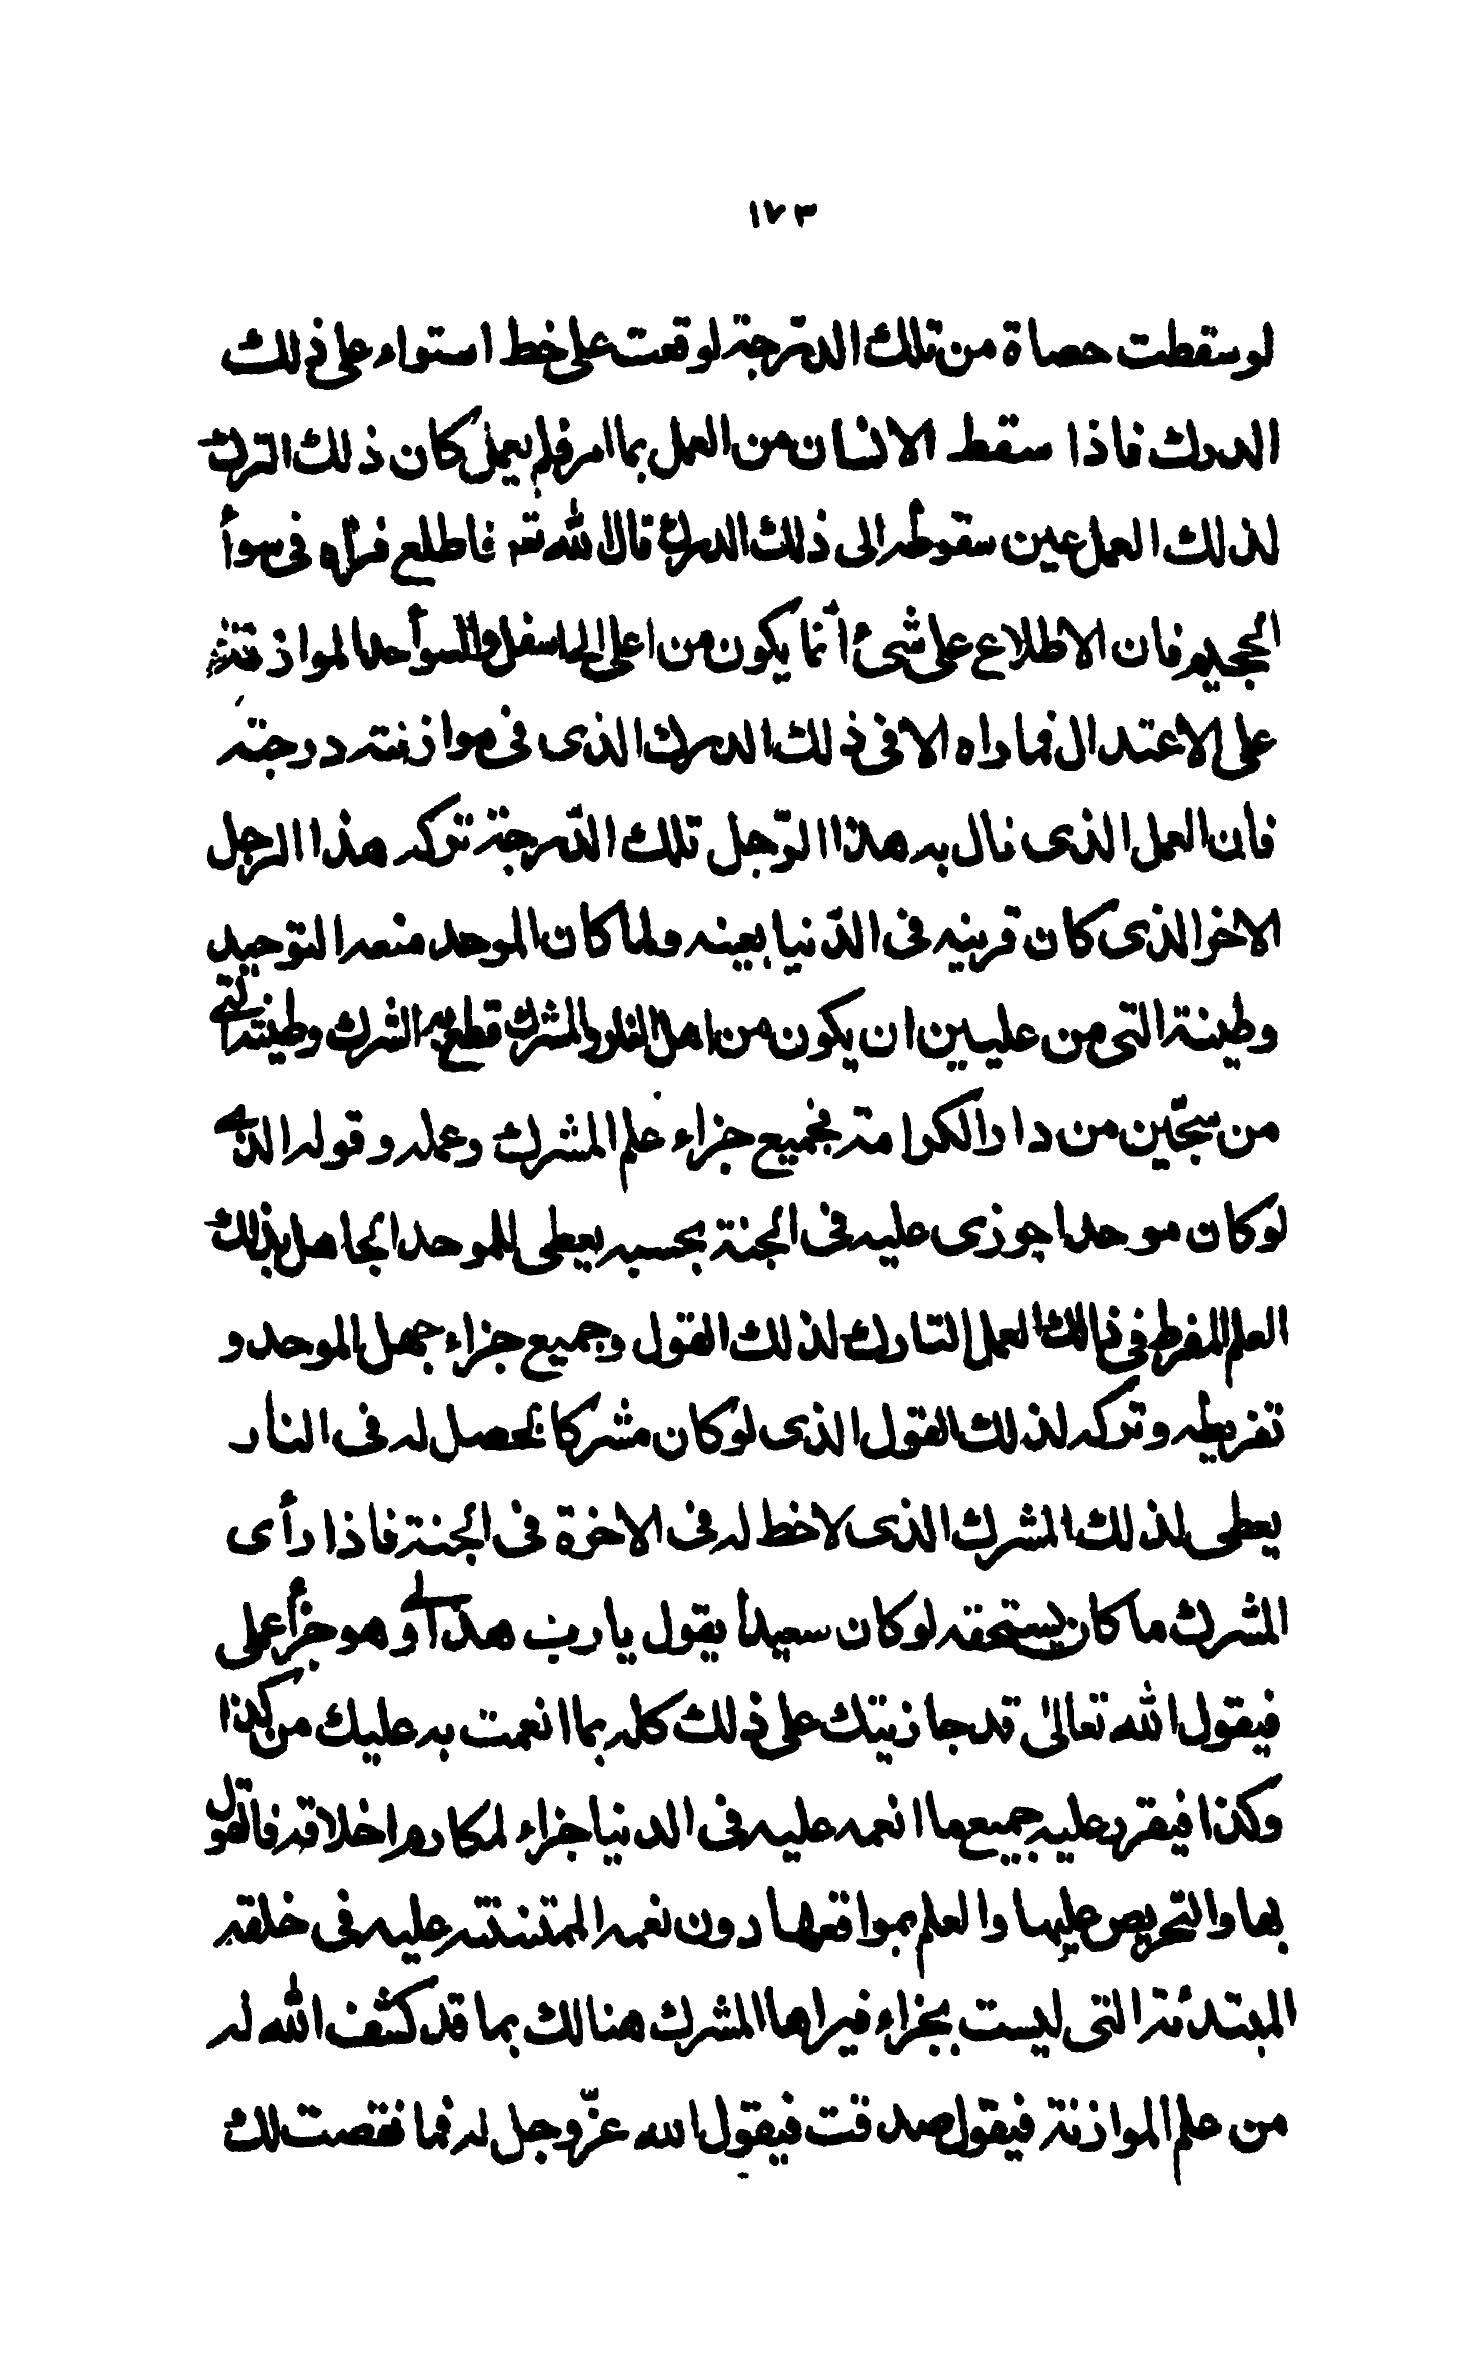 ١٧٣
لو سقطت حصاة من تلك الدرجة لوقعت على خط استواء على ذلك
الدرك فاذا سقط الانسان من العمل بما امر فلم يعمل كان ذلك الترك
لذلك العمل عين سقوطه الى ذلك الدرك قال الله تع فاطلع فرأه فى سوأ
الجحيم فان الاطلاع على شئ انما يكون من اعلى الى اسفل والسوأ حد الموازنة
على الاعتدال فما راه الا فى ذلك الدرك الذى فى موازنته درجته
فان العمل الذى نال به هذا الرّجل تلك الدّرجة تركه هذا الرجل
الاخر الذى كان قرينه فى الدّنيا بعينه ولما كان الموحد منعه التوحيد
وطينة التى من عليين ان يكون من اهل النار والمشرك قطع به الشرك وطينته التى
من سجّين من دار الكرامة فجميع جزاء علم المشرك وعمله وقوله الذى
لو كان موحدا جوزى عليه فى الجنة بحسبه يعطى للموحد الجاهل بذلك
العلم المفرط فى ذالك العمل التارك لذلك القول وجميع جزاء جهل الموحد و
تفريطه وتركه لذلك القول الذى لو كان مشركا لحصل له فى النار
يعطى لذلك المشرك الذى لاخط له فى الاخرة فى الجنة فاذا رأى
المشرك ما كان يستحقه لو كان سعيدا يقول يا رب هذا لى وهو جزأ عملى
فيقول الله تعالى قد جازيتك على ذلك كله بما انعمت به عليك من كذا
وكذا فيقرر عليه جميع ما انعمه عليه فى الدنيا جزاء لمكارم اخلاقه فالقول
بها والتحريص عليها والعلم بمواقعها دون نعمه الممتنته عليه فى خلقه
المبتدئة التى ليست بجزاء فيراها المشرك هنالك بما قد كشف الله له
من علم الموازنة فيقول صدقت فيقول الله عزّ وجل له فما نقصت لك